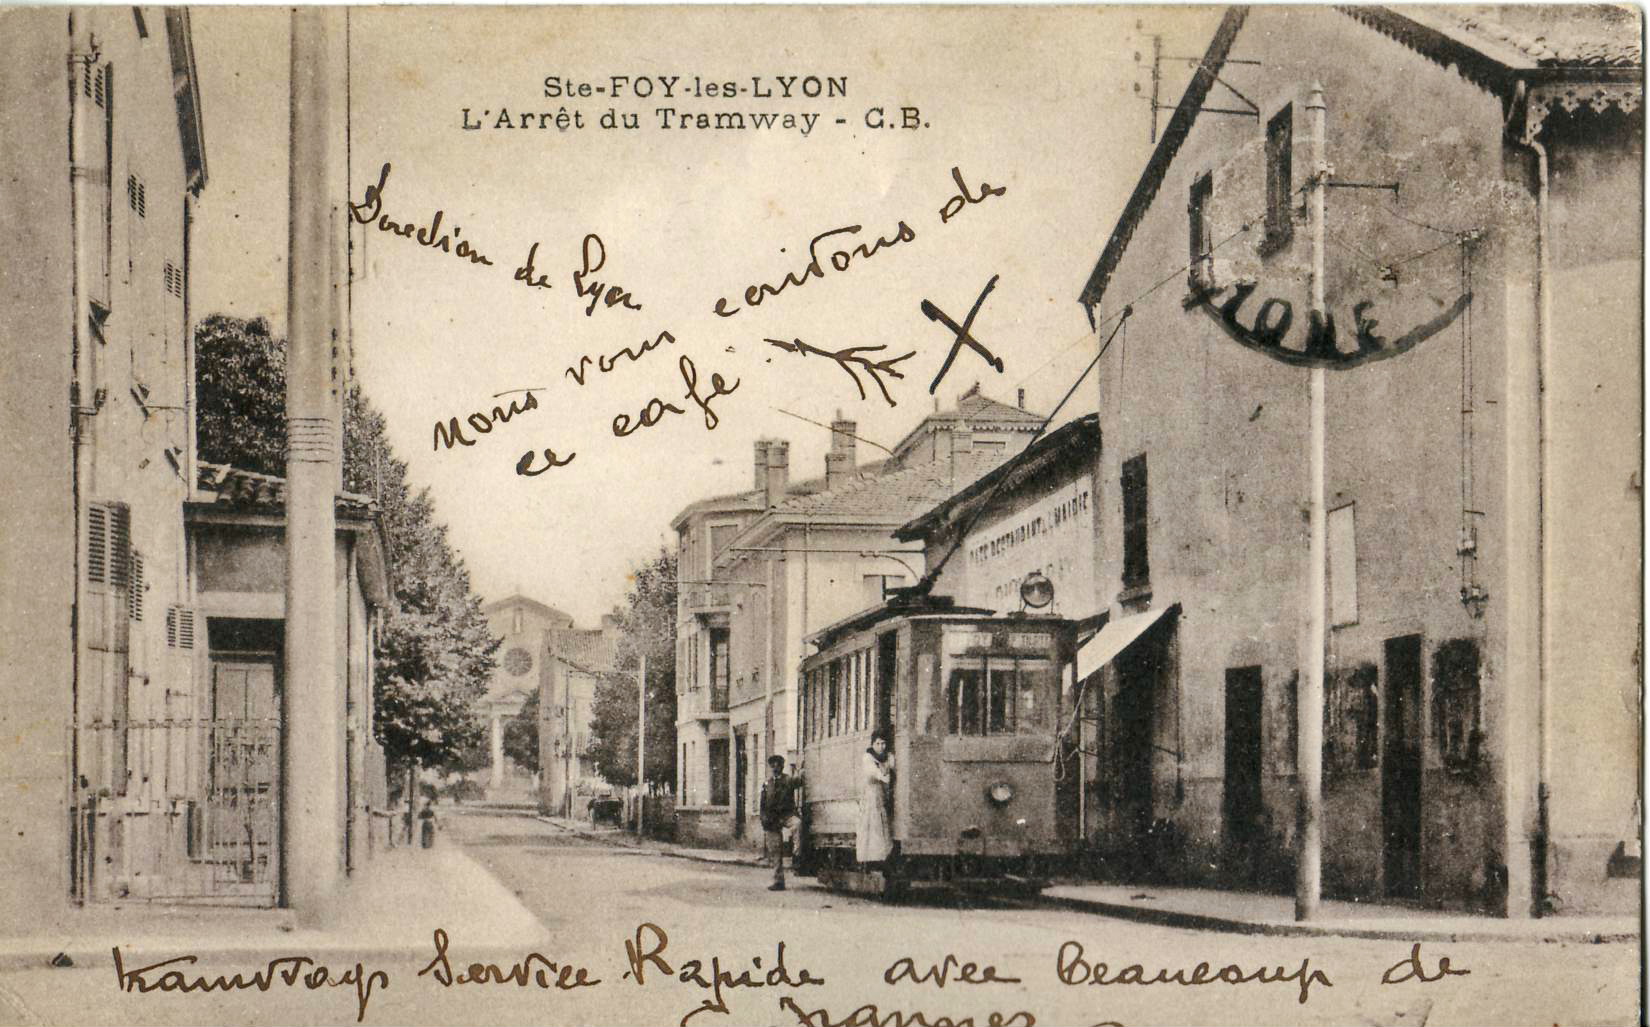 Ste-FOY-les-LYON
L'Arrêt du Tramway - C.B.
Direction de Lyon
nous vous ecrivons de
ce café
X
ZONE
CAFE RESTAURANT DE LA MAIRIE
tramways Service Rapide avec beaucoup de